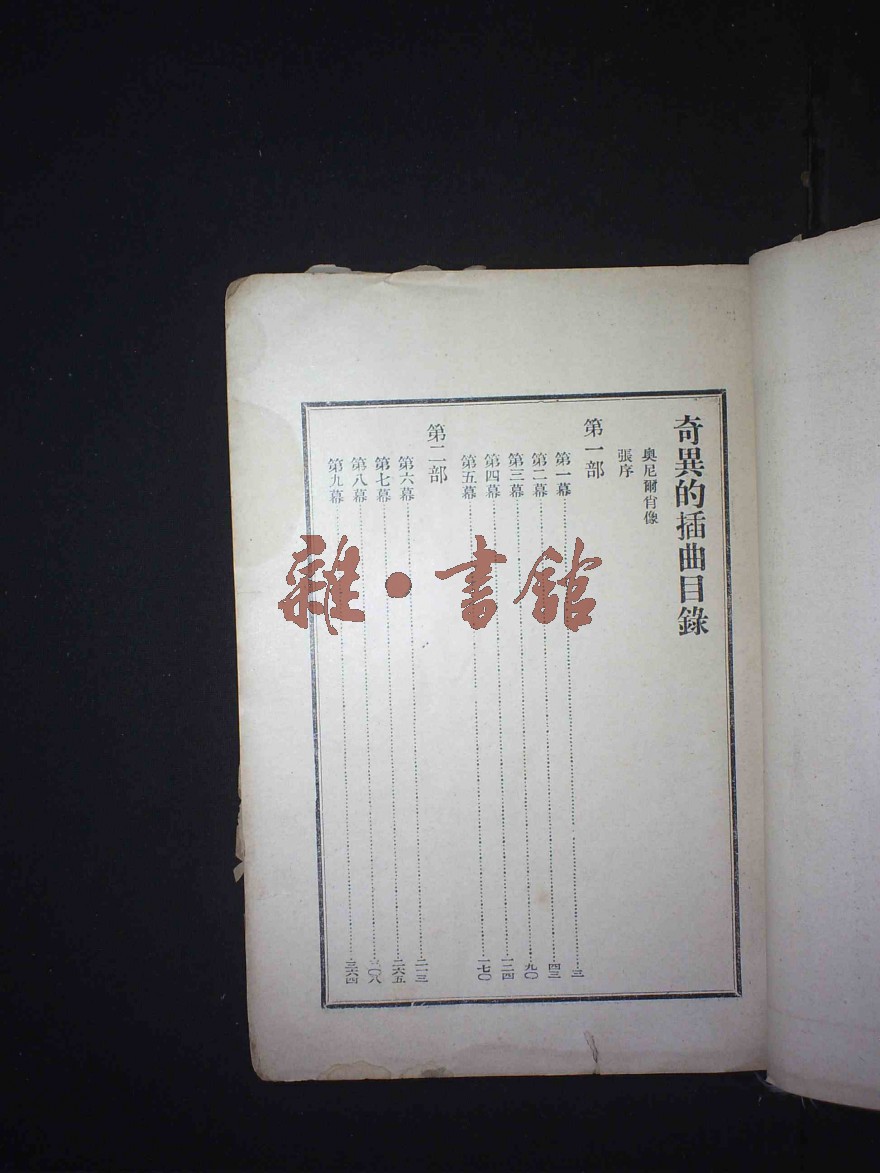 奇異的插曲目錄
奧尼爾肖像
張序
第一部
第一幕…………三
第二幕…………四三
第三幕…………九〇
第四幕…………一二四
第五幕…………一七〇
第二部
第六幕…………二一三
第七幕…………二六五
第八幕…………三〇八
第九幕…………三六四
雜·書館